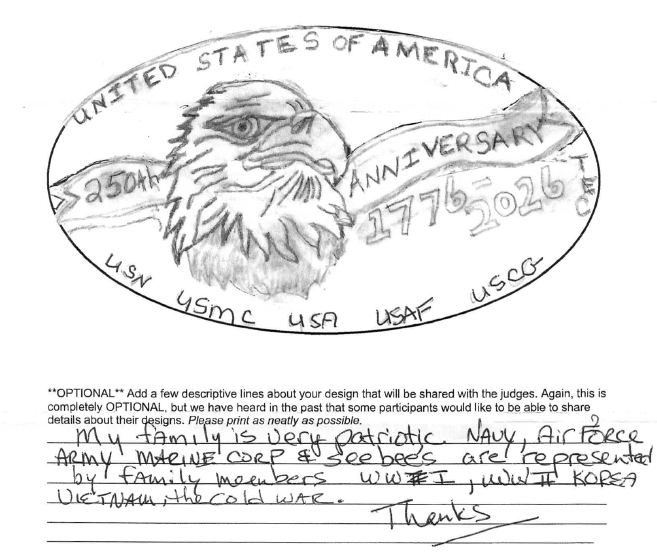 UNITED STATES OF AMERICA
250th ANNIVERSARY
1776-2026
TEC
USN USMC USA USAF USCG
**OPTIONAL** Add a few descriptive lines about your design that will be shared with the judges. Again, this is
completely OPTIONAL, but we have heard in the past that some participants would like to be able to share
details about their designs. Please print as neatly as possible.
My family is very patriotic. NAVY, Air Force
ARMY MARINE CORP & seebees are represented
by family members WW I, WW II KOREA
VIETNAM, the cold WAR.
Thanks